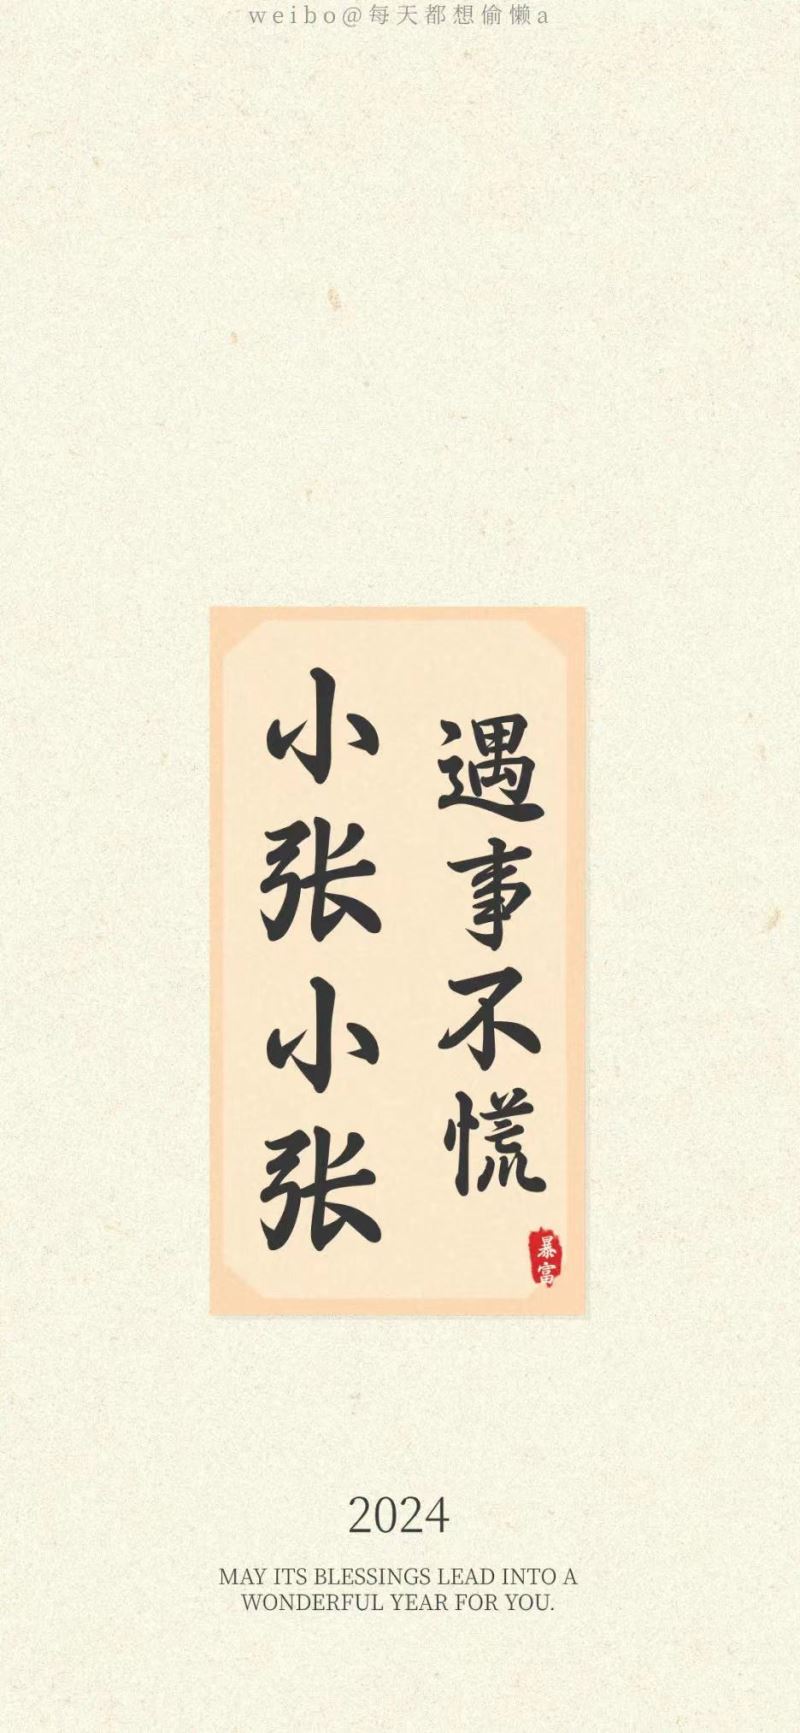 weibo@每天都想偷懒a
遇事不慌
小张小张
暴富
2024
MAY ITS BLESSINGS LEAD INTO A
WONDERFUL YEAR FOR YOU.